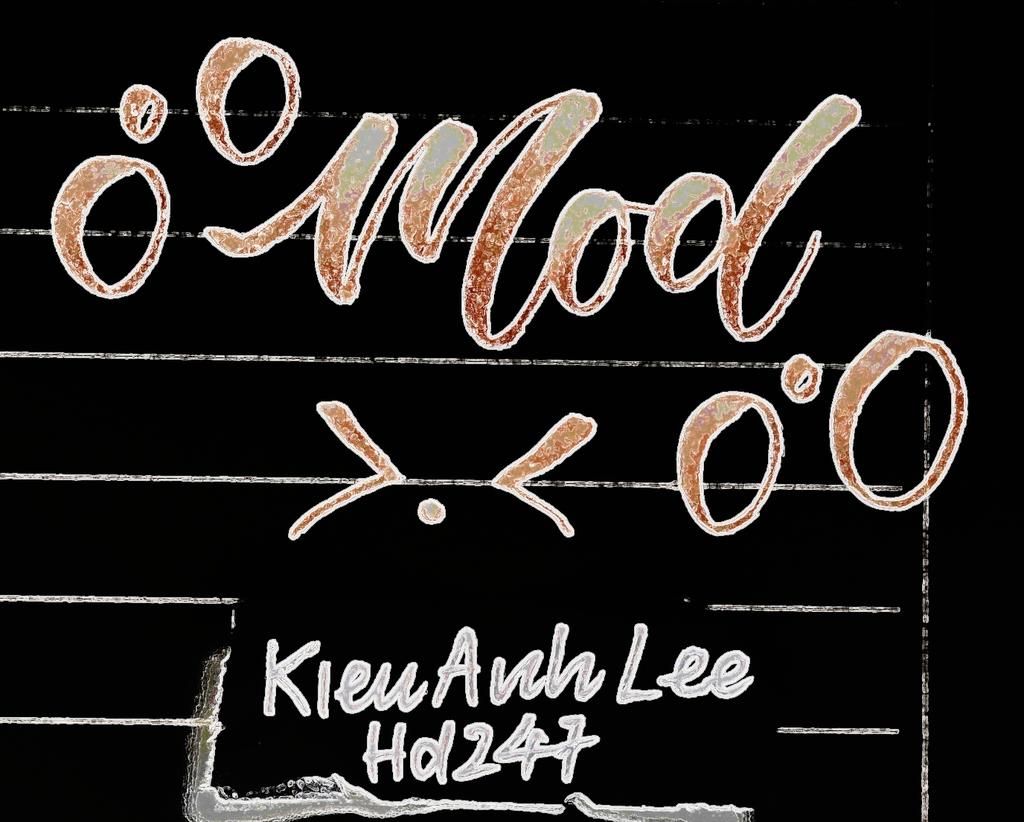 Mod
Kieu Anh Lee
Hd247